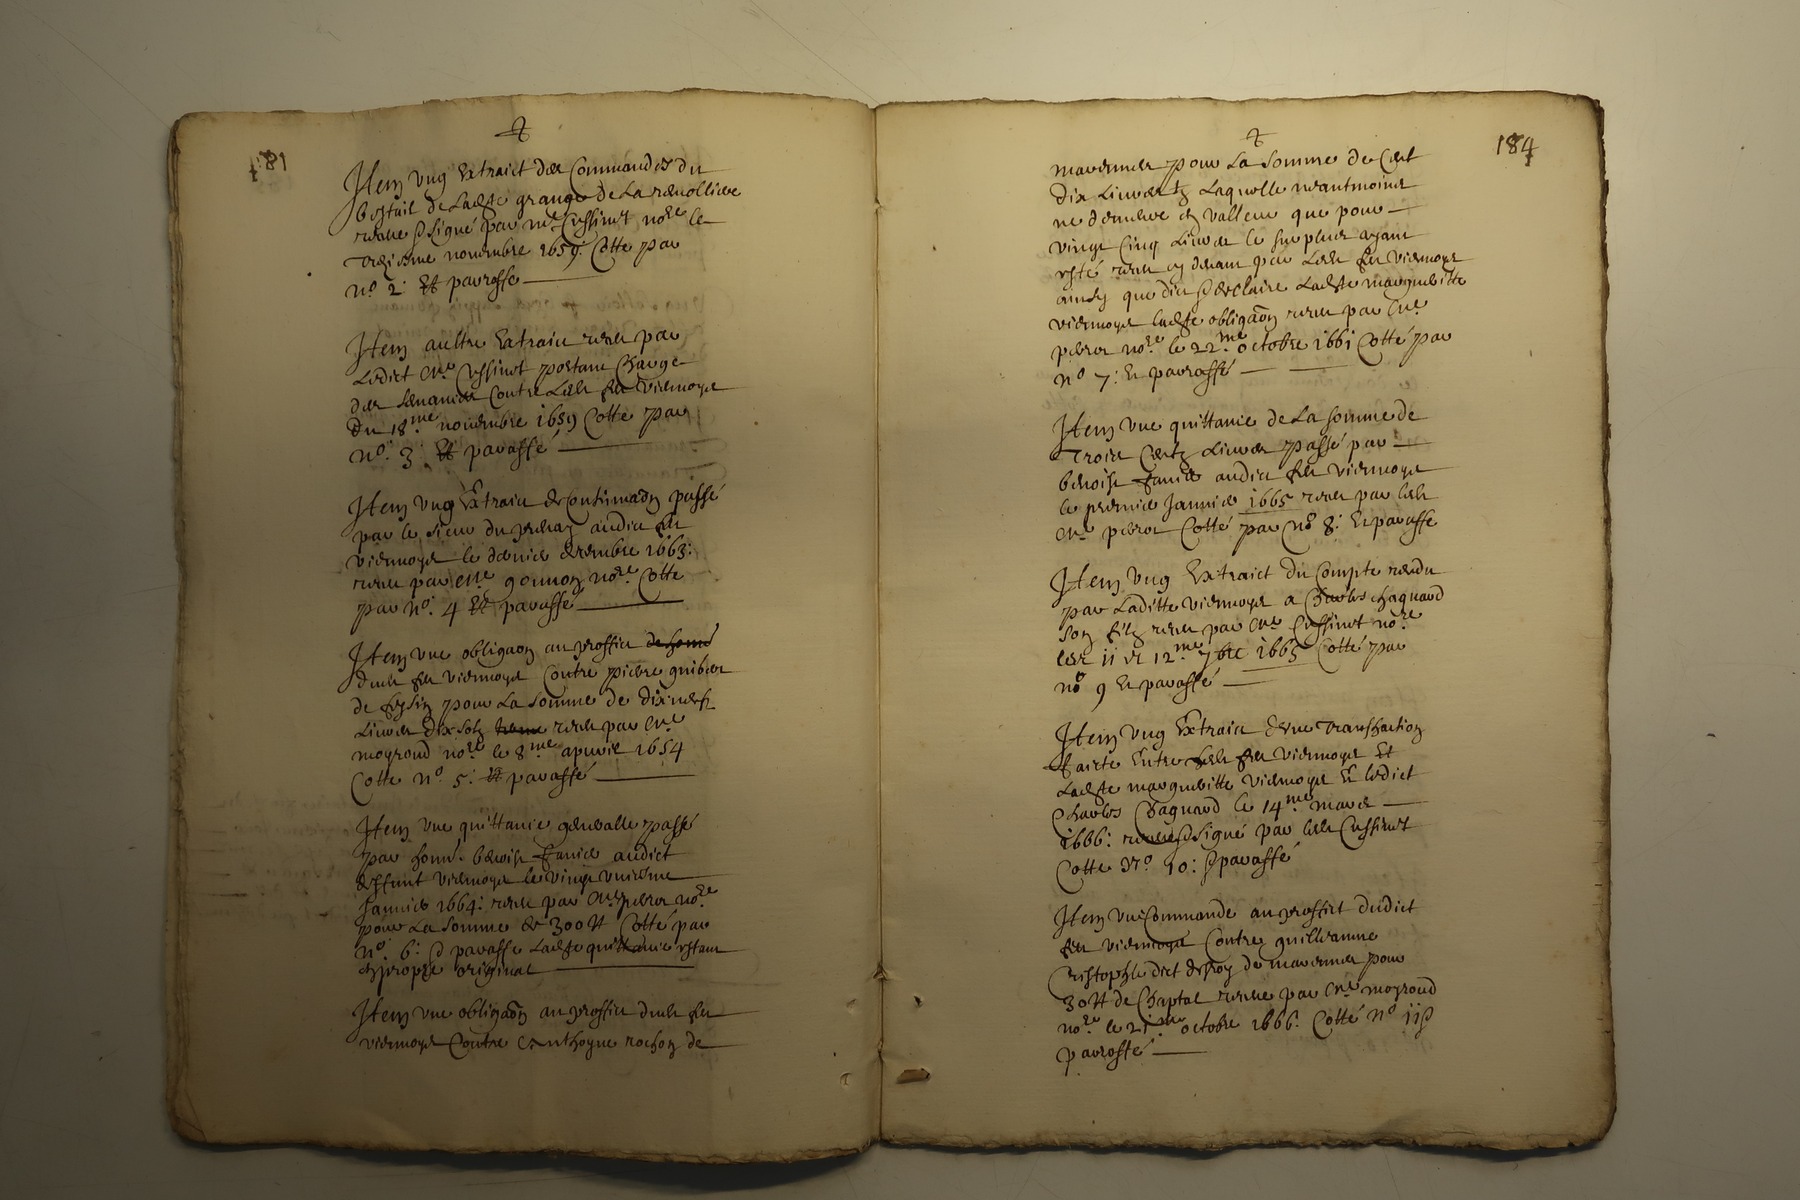 181
Item ung Extraict des Commandes du
bestail de ladte grange de La
receu signé par me Cussinet nore le
treziesme novembre 1659. Cotte par
no. 2. Et paraffe
Item aultre Extraict receu par
Ledict me Cussinet portant Charge
des contre ledt feu viermoys
du 18.me novembre 1659 Cotté par
no. 3. Et paraffé
Item ung Extraict de passé
par le sieur du audict feu
viermoys le dernier decembre 1663:
receu par me nore. Cotte
par no. 4 Et paraffé
Item une obligaon au proffict
dudt feu viermoys Contre pierre guibert
de pour La somme de dix neuf
Livres dix solz receu par me
moyroud nore le 8.me apvril 1654
Cotte no. 5: Et paraffé
Item une quittance generalle passé
par honn. benoist Janier audict
deffunt viermoys le vingt uniesme
Janvier 1664: receu par me pierer nore.
pour La somme de 300 tt Cotté par
no. 6: & paraffe Ladte quittance estant
en propre original
Item une obligaon au proffict dudt feu
viermoys Contre Anthoyne rochon de
184
marennes pour La somme de Cent
dix Livres tz Laquelle neantmoins
ne demeure en valleur que pour
vingt Cinq Livres le surplus ayant
esté receu cy devant par Ledt feu viermoys
ainsy que dict & declaire Ladte margueritte
viermoys Ladte obligaon receu par me
pierer nore. le 22.me octobre 1661 Cotté par
no 7: Et paraffé
Item une quittance de La somme de
Trois Centz Livres passé par
benoist Janier audict feu viermoys
le premier Janvier 1665 receu par ledt
me pierer Cotté par no 8: Et paraffe
Item ung Extraict du Compte rendu
par Laditte viermoys a Charles Chaguard
son filz receu par me Cussinet nore
les 11 et 12.me 7bre 1665 Cotté par
no 9 Et paraffé
Item ung Extraict d'une transaction
faicte Entre ledt feu viermoys Et
Ladte margueritte viermoys Et ledict
Charles Chaguard le 14.me mars
1666: receu & signé par ledt Cussinet
Cotte No. 10: & paraffé
Item une Commande au proffict dudict
feu viermoys Contre guilleaume
Cristophle dict de marennes pour
30 tt de Chaptal receue par me moyroud
nore le 21.me octobre 1666. Cotté No 11 &
paraffé